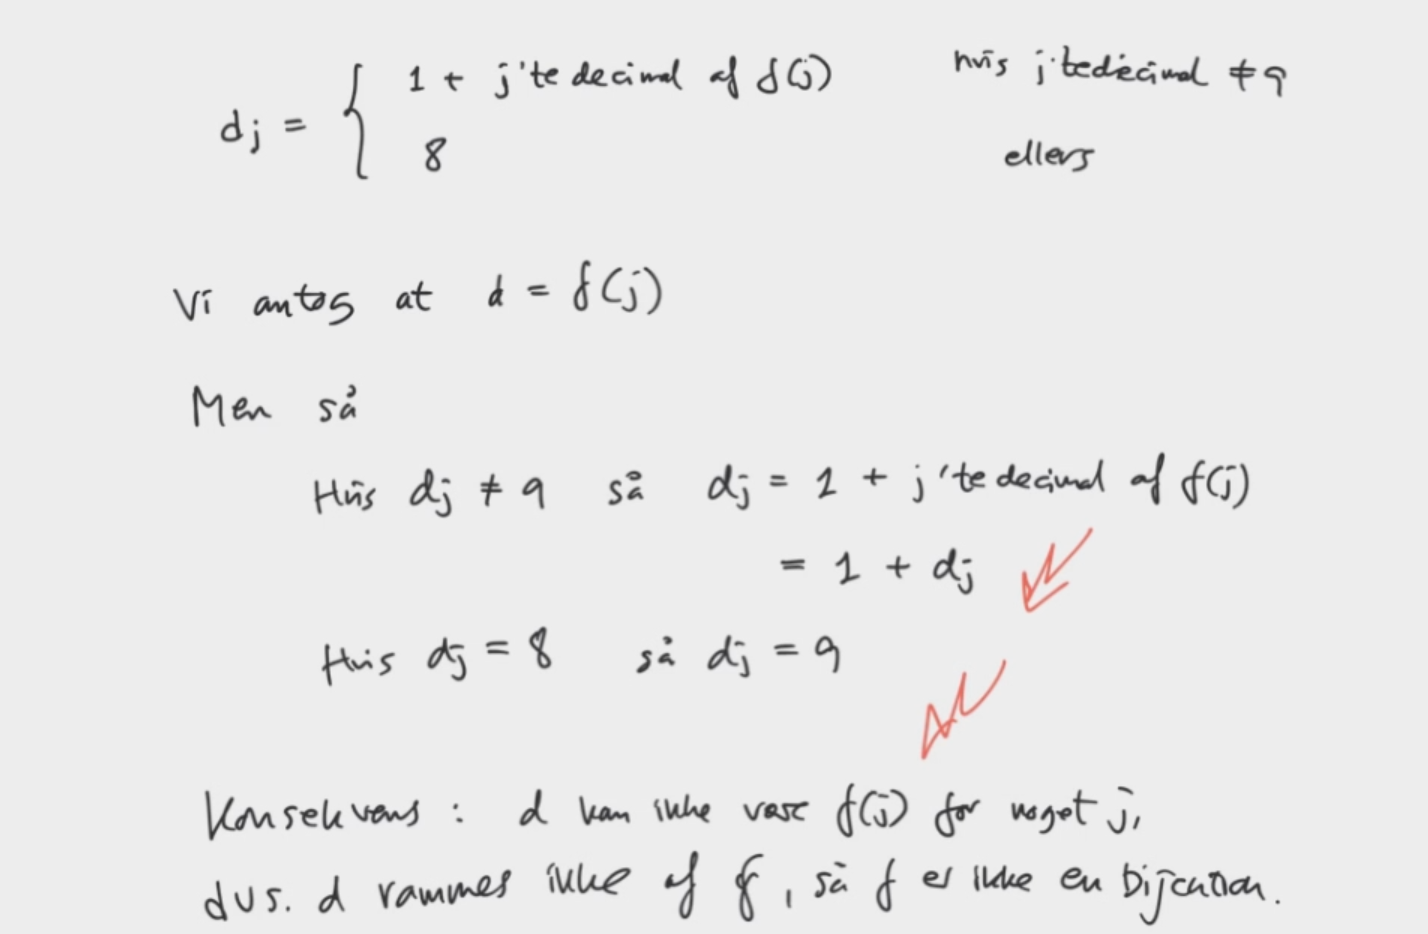 dj = { 1 + j'te decimal af f(j) hvis j'te decimal ≠ 9
8 ellers
Vi antog at d = f(j)
Men så
Hvis dj ≠ 9 så dj = 1 + j'te decimal af f(j)
= 1 + dj
Hvis dj = 8 så dj = 9
Konsekvens : d kan ikke være f(j) for noget j,
dvs. d rammes ikke af f, så f er ikke en bijection.